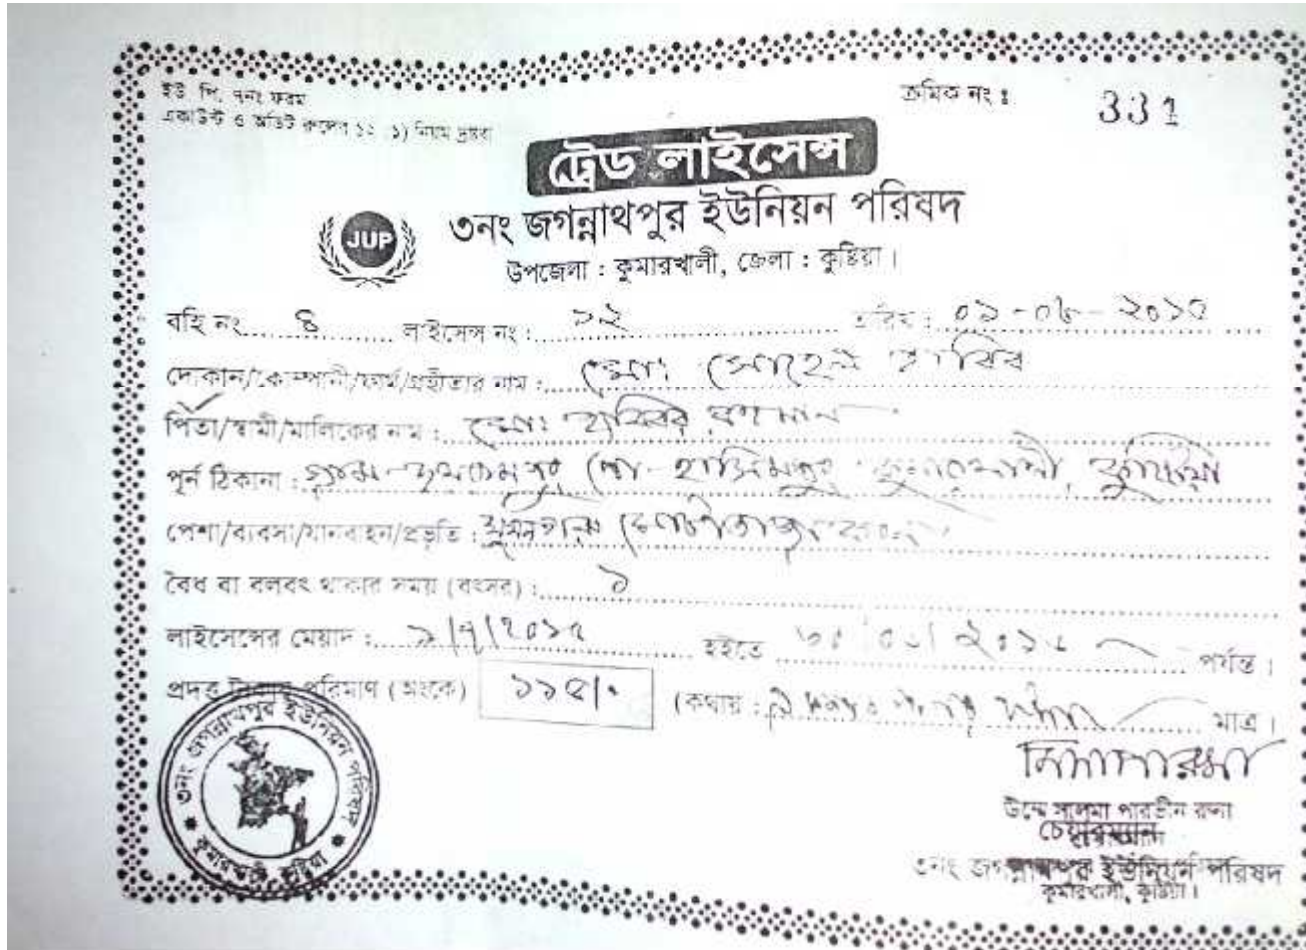 ইউ পি. ৭নং ফরম
একাউন্ট ও অডিট রুলের ১২ (১) নিয়ম দ্রষ্টব্য
ক্রমিক নং : 331
ট্রেড লাইসেন্স
JUP
৩নং জগন্নাথপুর ইউনিয়ন পরিষদ
উপজেলা : কুমারখালী, জেলা : কুষ্টিয়া।
বহি নং 8 লাইসেন্স নং : ১২ তারিখ : ০১-০৮-২০১৫
দোকান/কোম্পানী/ফার্ম/গ্রহীতার নাম : মোঃ সোহেল রাবিব
পিতা/স্বামী/মালিকের নাম : মোঃ হাবিবর রহমান
পূর্ন ঠিকানা : গ্রাম- পো- হাসিমপুর কুমারখালী, কুষ্টিয়া
পেশা/ব্যবসা/যানবাহন/প্রভৃতি :
বৈধ বা বলবৎ থাকার সময় (বৎসর) : ১
লাইসেন্সের মেয়াদ : ১/৭/২০১৫ হইতে পর্যন্ত।
প্রদত্ত টাকার পরিমাণ (অংকে) ১১৫/. (কথায় : মাত্র।
উম্মে সালমা পারভীন রুনা
চেয়ারম্যান
৩নং জগন্নাথপুর ইউনিয়ন পরিষদ
কুমারখালী, কুষ্টিয়া।
৩নং জগন্নাথপুর ইউনিয়ন পরিষদ
কুমারখালী, কুষ্টিয়া